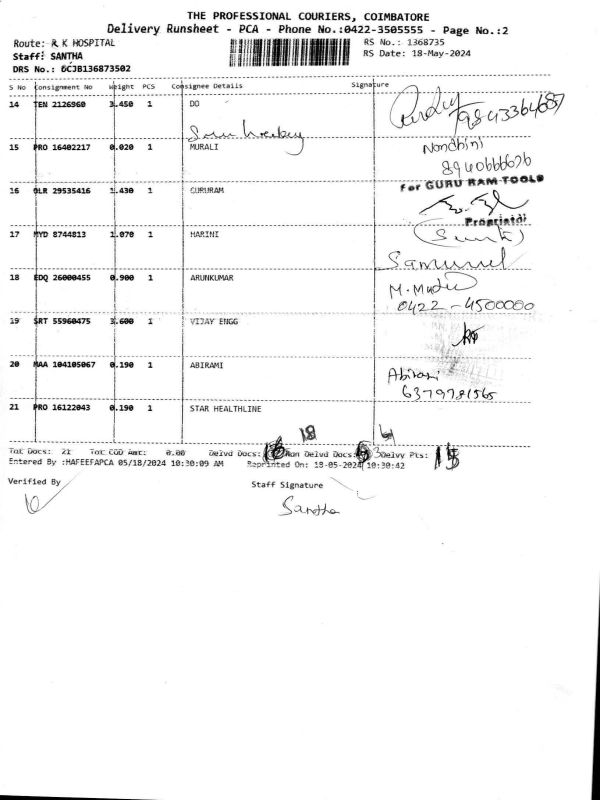 THE PROFESSIONAL COURIERS, COIMBATORE
Delivery Runsheet - PCA - Phone No.:0422-3505555 - Page No.:2
Route: R K HOSPITAL RS No.: 1368735
Staff: SANTHA RS Date: 18-May-2024
DRS No.: 6CJB136873502
S No Consignment No Weight PCS Consignee Details Signature
14 TEN 2126960 3.450 1 DO
9843364687
15 PRO 16402217 0.020 1 MURALI Nandhini
8940666626
16 GLR 29535416 1.430 1 GURURAM For GURU RAM TOOLS
17 MYD 8744813 1.070 1 HARINI
18 EDQ 26000455 0.900 1 ARUNKUMAR
0422-4500000
19 SRT 55960475 3.600 1 VIJAY ENGG
20 MAA 104105067 0.190 1 ABIRAMI Abirami
6379781565
21 PRO 16122043 0.190 1 STAR HEALTHLINE
18
Tot Docs: 21 Tot COD Amt: 0.00 Delvd Docs: Non Delvd Docs: 3 Delvy Pts:
Entered By :HAFEEFAPCA 05/18/2024 10:30:09 AM Reprinted On: 18-05-2024 10:30:42
Verified By Staff Signature
Santha